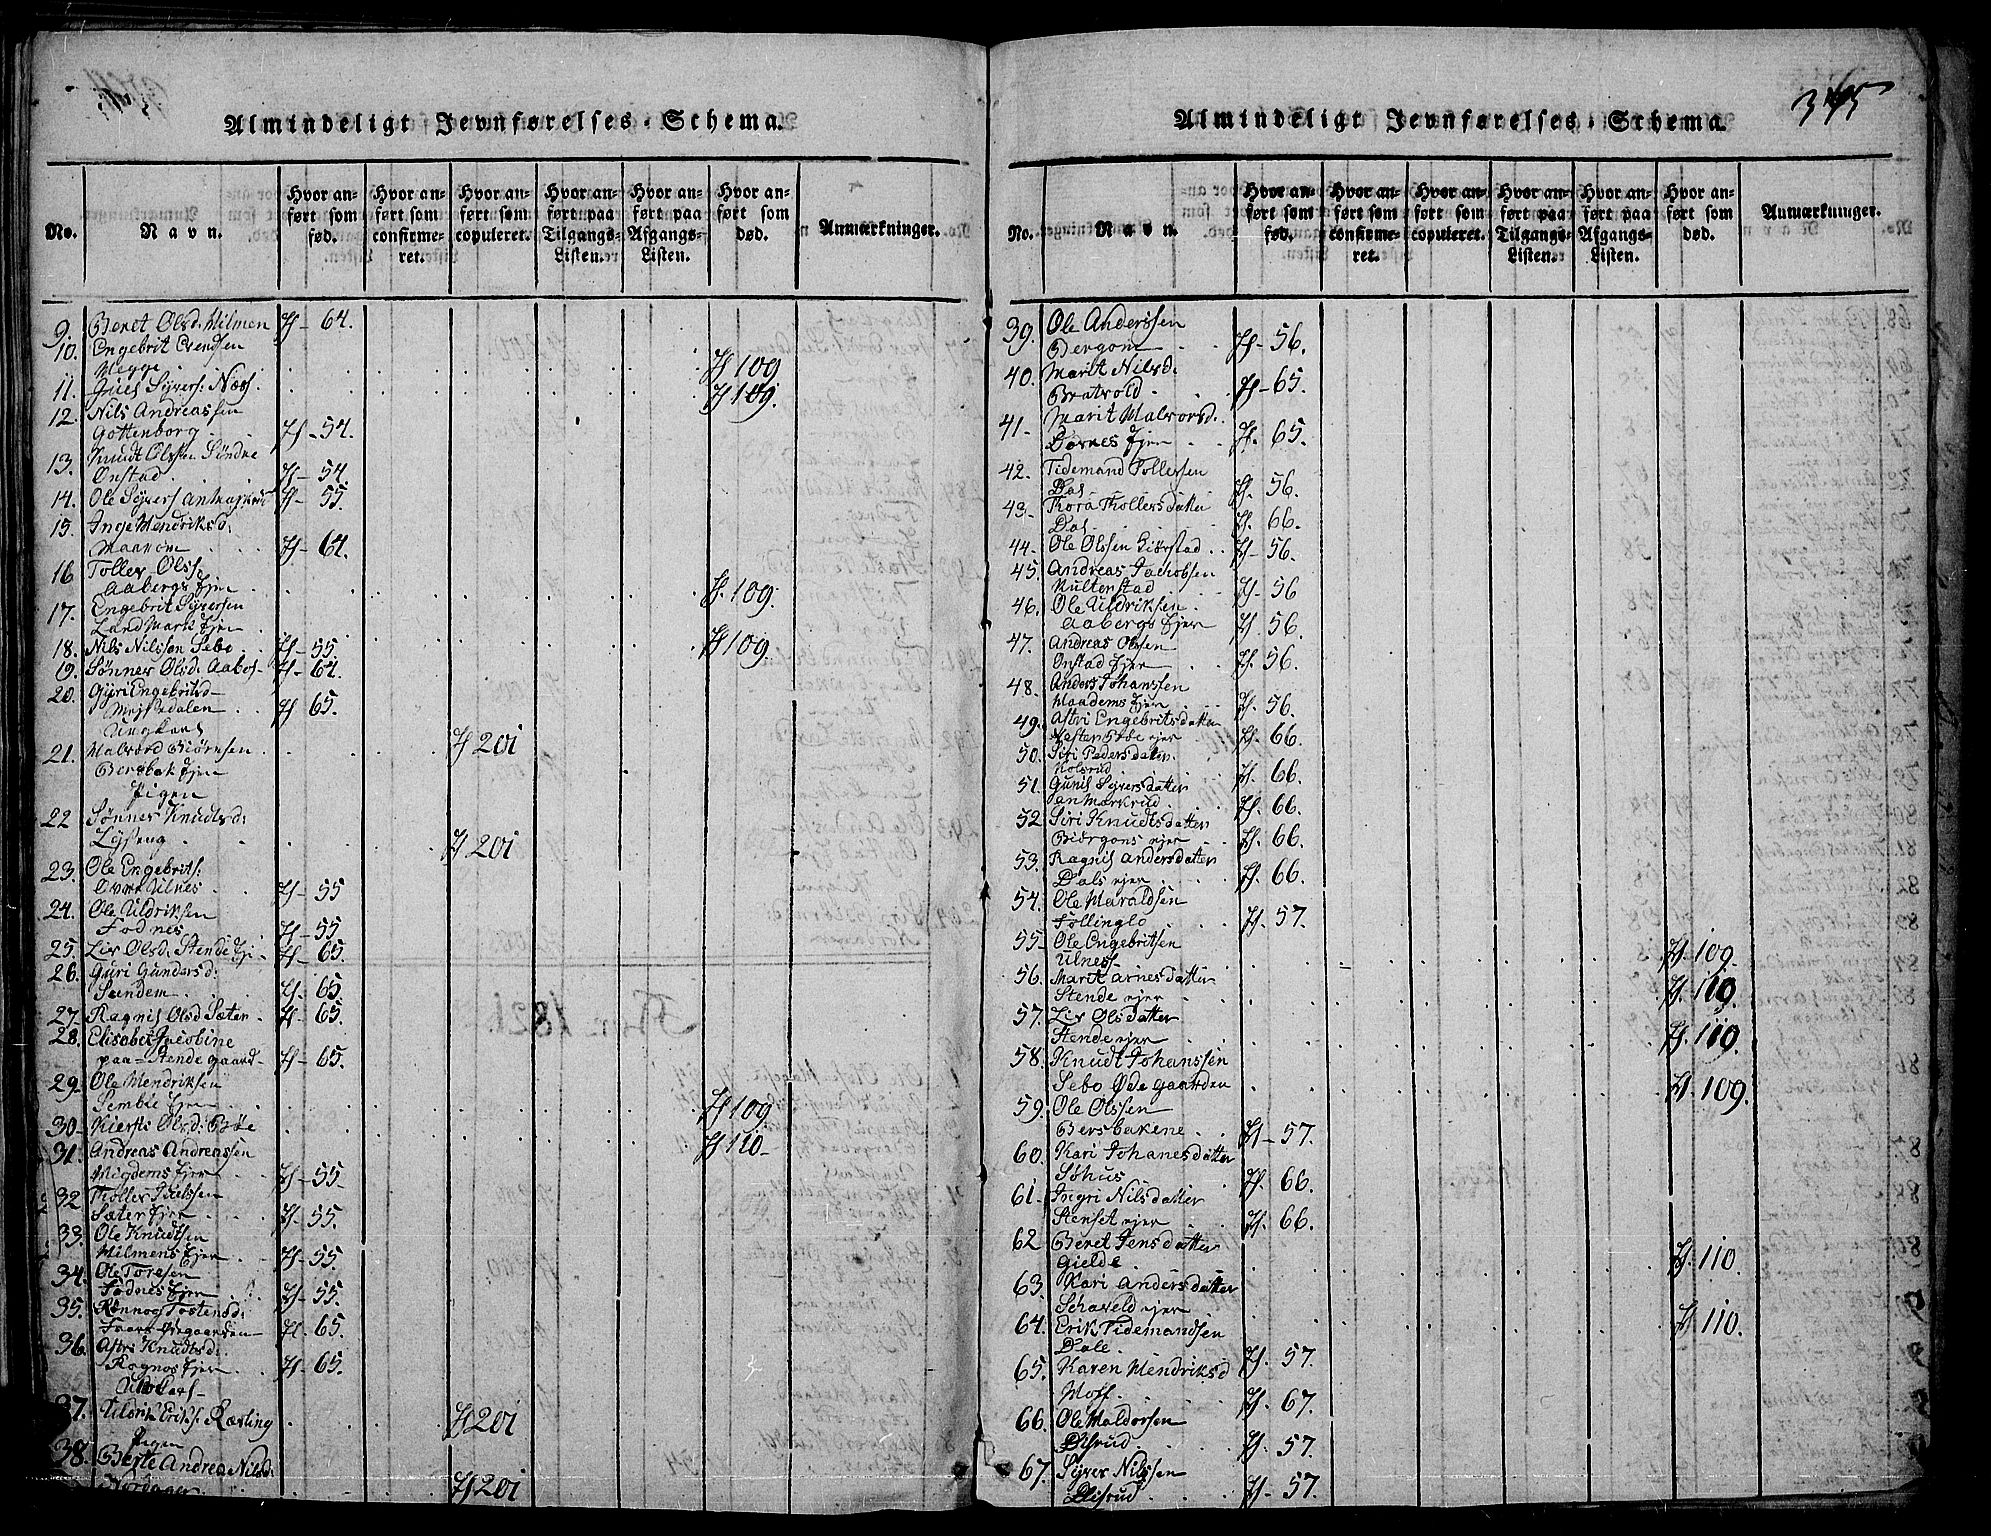 Almindeligt Jevnførelses-Schema.
No.
Navn.
Hvor anført som fød.
Hvor anført som confirmeret.
Hvor anført som copuleret.
Hvor anført paa Tilgangs-Listen.
Hvor anført paa Afgangs-Listen.
Hvor anført som død.
Anmærkninger.
9. Beret Olsd: Hilmen H - 64.
10. Engebrit Evendsen
Hegge. H 109
11. Juel Syvers: Næss. H 109.
12. Nils Andreassen
Gottenborg H - 54.
13. Knudt Olssen Søndre
Onstad. H - 54.
14. Ole Syvers H - 55.
15. Inge Hendriksd:
Maarom H - 64.
16 Toller Olss:
Aabergs Ejer H. 109.
17. Engebrit Syversen
Landmark Ejer H 109.
18. Nils Nilsson Sebo H - 55.
19. Sønnev Olsd: Aabol H - 64.
20. Gyri Engebritsd-
dalen H 65.
Ungkarl
21. Halvord Biørnsen
Bersbak Ejer H 201
Pigen
22 Sønnev Knudtsd:
Lyseng H 201
23. Ole Engebrits:
Øvre Ulnes H - 55
24. Ole Uldriksen
Fodnes H - 55
25. Liv Olsd: Stende Ej - H - 65.
26. Guri Gundersd:
Sundem H. 65
27. Ragnil Olsd Sæter H - 65.
28. Elisabet Jacobine
paa - Stende gaard H - 65.
29. Ole Hendriksen
Sembie Ejer H 109.
30. Kiersti Olsd: Bøe H 110 -
31. Andreas Andreassen
Migdems Ejer H - 55.
32 Tholler Juelssen
Sæter Ejer H - 55.
33. Ole Knudtsen
Hilmens Ejer H - 55.
34. Ole Toresen
Fodnes Ejer H - 55.
35. Rønnog Tostensd:
H. 65.
36. Astri Knudtsd:
Rognos Ejer H - 65.
37. Uldrik Eriks: Ræsling H 201
Pigen
38. Berte Andrea Nilsd: H 201
Almindeligt Jevnførelses-Schema.
345
No.
Navn.
Hvor anført som fød.
Hvor anført som confirmeret.
Hvor anført som copuleret.
Hvor anført paa Tilgangs-Listen.
Hvor anført paa Afgangs-Listen.
Hvor anført som død.
Anmærkninger.
39. Ole Anderssen
Bergom H - 56.
40. Marit Nilsd:
Bratvold H - 65.
41. Marit Halvorsd.
Dornes Ejer H. 65.
42. Tidemand Tollersen
Dal H. 56.
43. Thora Thollersdatter
Dal. H. 66.
44. Ole Olssen Kiørstad H - 56.
45. Andreas Jachobsen
Hultenstad H - 56
46. Ole Uldriksen.
Aabergs Ejer H. 56.
47. Andreas Olssen
Onstad Ejer H. 56.
48. Anders Johanssen
Haadems Ejer H. 56.
49. Astri Engebritsdatter
ejer H. 66.
50. Siri Pedersdatter
Kolsrud H. 66.
51. Gunil Syversdatter
H. 66.
52. Siri Knudtsdatter
Biørgons ejer H. 66.
53. Ragnil Andersdatter
Dals ejer H. 66.
54. Ole Haraldsen
Follinglo H. 57.
55. Ole Engebritsen
Ulness. H. 109.
56. Marit Arnesdatter
Stende ejer H. 110.
57. Liv Olsdatter
Stende ejer H. 110.
58. Knudt Johanssen
Sebo Ødegaarden H. 109.
59. Ole Olssen
Bersbakene H - 57.
60. Kari Johanesdatter
Søhus H. 66.
61. Ingri Nilsdatter
Stenset ejer H. 66.
62 Beret Jensdatter
Gielde H. 110.
63. Kari Andersdatter
Schaveld ejer H 110.
64. Erik Tidemandsen
Dale. H. 57.
65. Karen Hendriksd
Hoff. H. 67.
66. Ole Haldorsen
Elsrud H. 57.
67. Syver Nilssen
Elsrud H - 57.